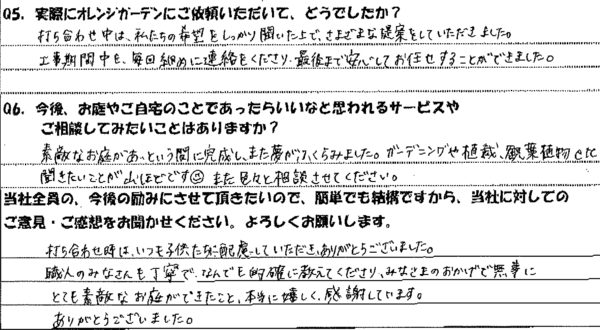 Q5. 実際にオレンジガーデンにご依頼いただいて、どうでしたか？
打ち合わせ中は、私たちの希望をしっかり聞いた上で、さまざまな提案をしていただきました。
工事期間中も、毎回細めに連絡をくださり、最後まで安心してお任せすることができました。
Q6. 今後、お庭やご自宅のことであったらいいなと思われるサービスや
ご相談してみたいことはありますか？
素敵なお庭があっという間に完成し、また夢がふくらみました。ガーデニングや植栽、観葉植物etc
聞きたいことが山ほどです☺ また色々と相談させてください。
当社全員の、今後の励みにさせて頂きたいので、簡単でも結構ですから、当社に対しての
ご意見・ご感想をお聞かせください。よろしくお願いします。
打ち合わせ時は、いつも子供たちに配慮していただき、ありがとうございました。
職人のみなさんも丁寧で、なんでも的確に教えてくださり、みなさまのおかげで無事に
とても素敵なお庭ができたこと、本当に嬉しく、感謝しています。
ありがとうございました。